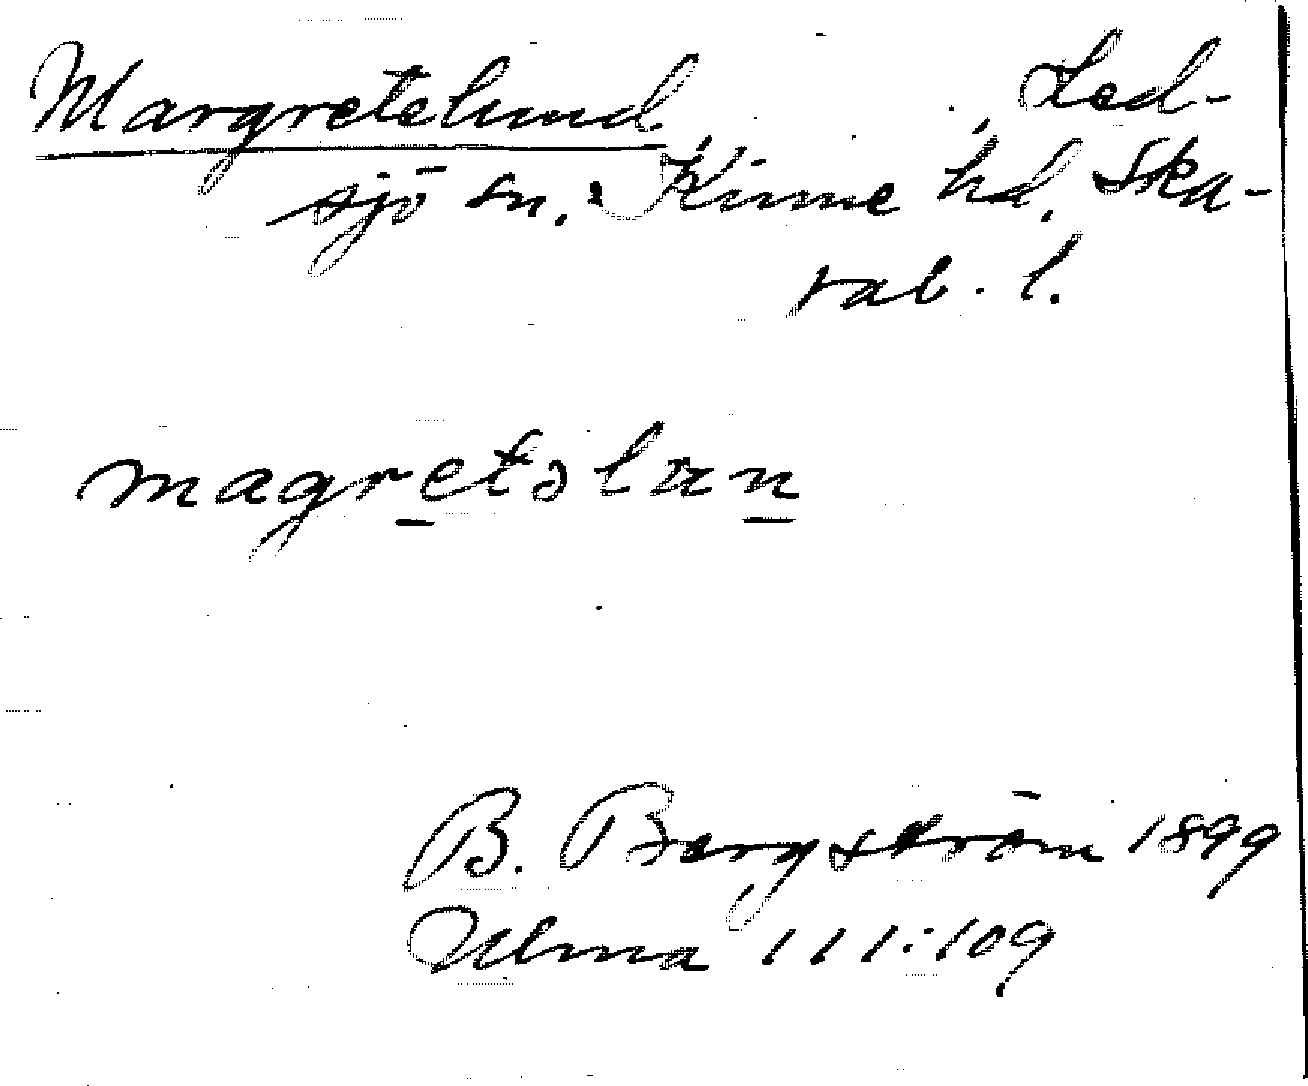 Margretelund, Led-
sjö sn. Kinne hd. Ska-
rab. l.
magretəlun
B. Bergström 1899
Ulma 111:109